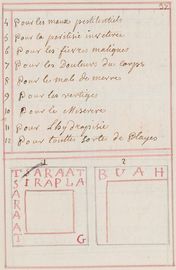 57
4 pour les maux pestilentiels
5 pour la paralisie inveterée
6 pour les fievres malignes
7 pour les Douleurs du corps
8 pour le mal de mere
9 pour les vertiges
10 pour le Miserere
11 pour L'hydropisie
12 Pour toutes sorte de Playes
1
2
TSARAAT
SIRAPLA
SARAAT
G
BUAH